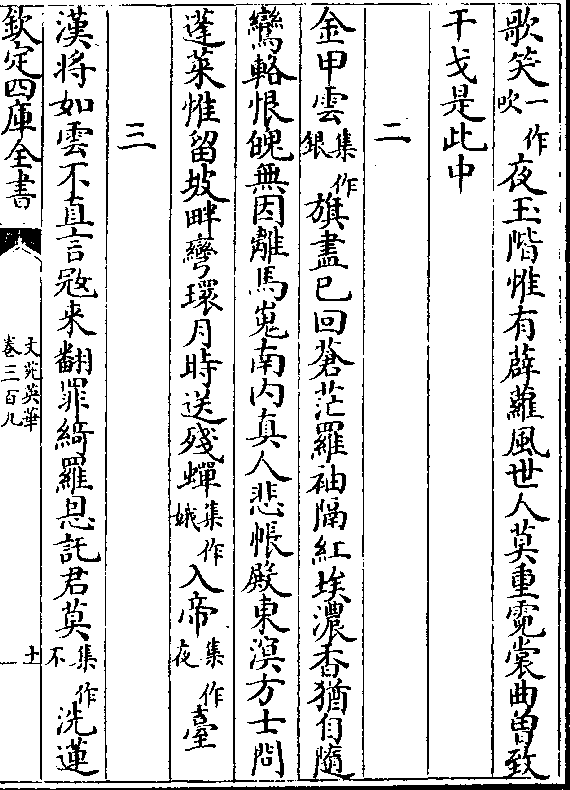 歌笑一作吹夜玉階惟有薜蘿風世人莫重霓裳曲曽致
干戈是此中
二
金甲雲集作銀旗盡已回蒼茫羅袖隔紅埃濃香猶自隨
鸞輅恨魄無因離馬嵬南内真人悲帳殿東溟方士問
蓬萊惟留坡畔彎環月時送殘蟬集作娥入帝集作夜臺
三
漢將如雲不直言㓂来翻罪綺羅恩託君莫集作不洗蓮
欽定四庫全書
文苑英華
卷三百九
十一